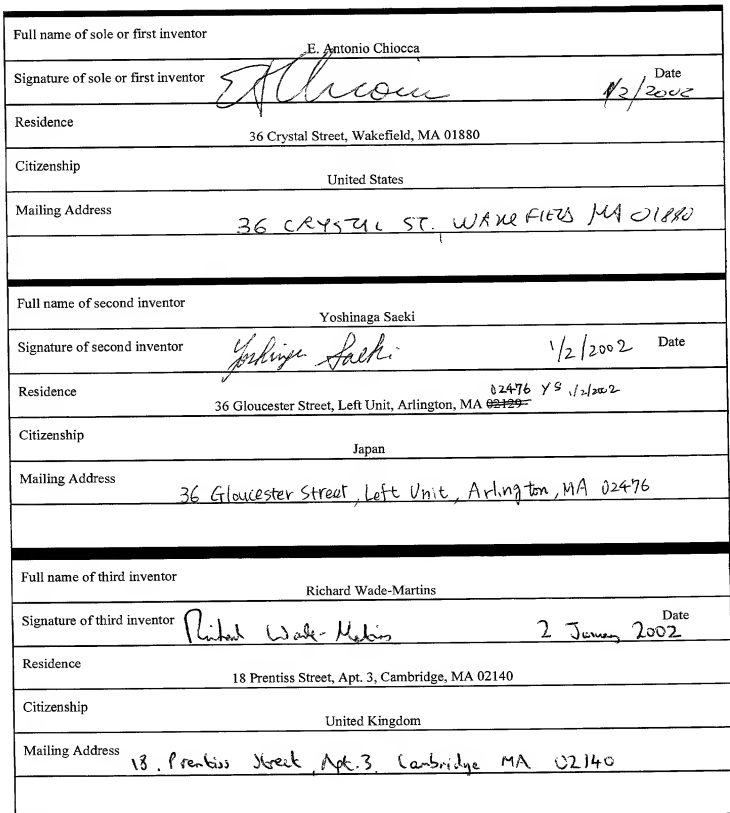 Full name of sole or first inventor
E. Antonio Chiocca
Signature of sole or first inventor Date
1/2/2002
Residence
36 Crystal Street, Wakefield, MA 01880
Citizenship
United States
Mailing Address
36 CRYSTAL ST. WAKEFIELD MA 01880
Full name of second inventor
Yoshinaga Saeki
Signature of second inventor Yoshinaga Saeki 1/2/2002 Date
Residence 02476 YS 1/2/2002
36 Gloucester Street, Left Unit, Arlington, MA 02129
Citizenship
Japan
Mailing Address
36 Gloucester Street, Left Unit, Arlington, MA 02476
Full name of third inventor
Richard Wade-Martins
Signature of third inventor Richard Wade-Martins 2 January 2002 Date
Residence
18 Prentiss Street, Apt. 3, Cambridge, MA 02140
Citizenship
United Kingdom
Mailing Address 18. Prentiss Street, Apt. 3, Cambridge MA 02140